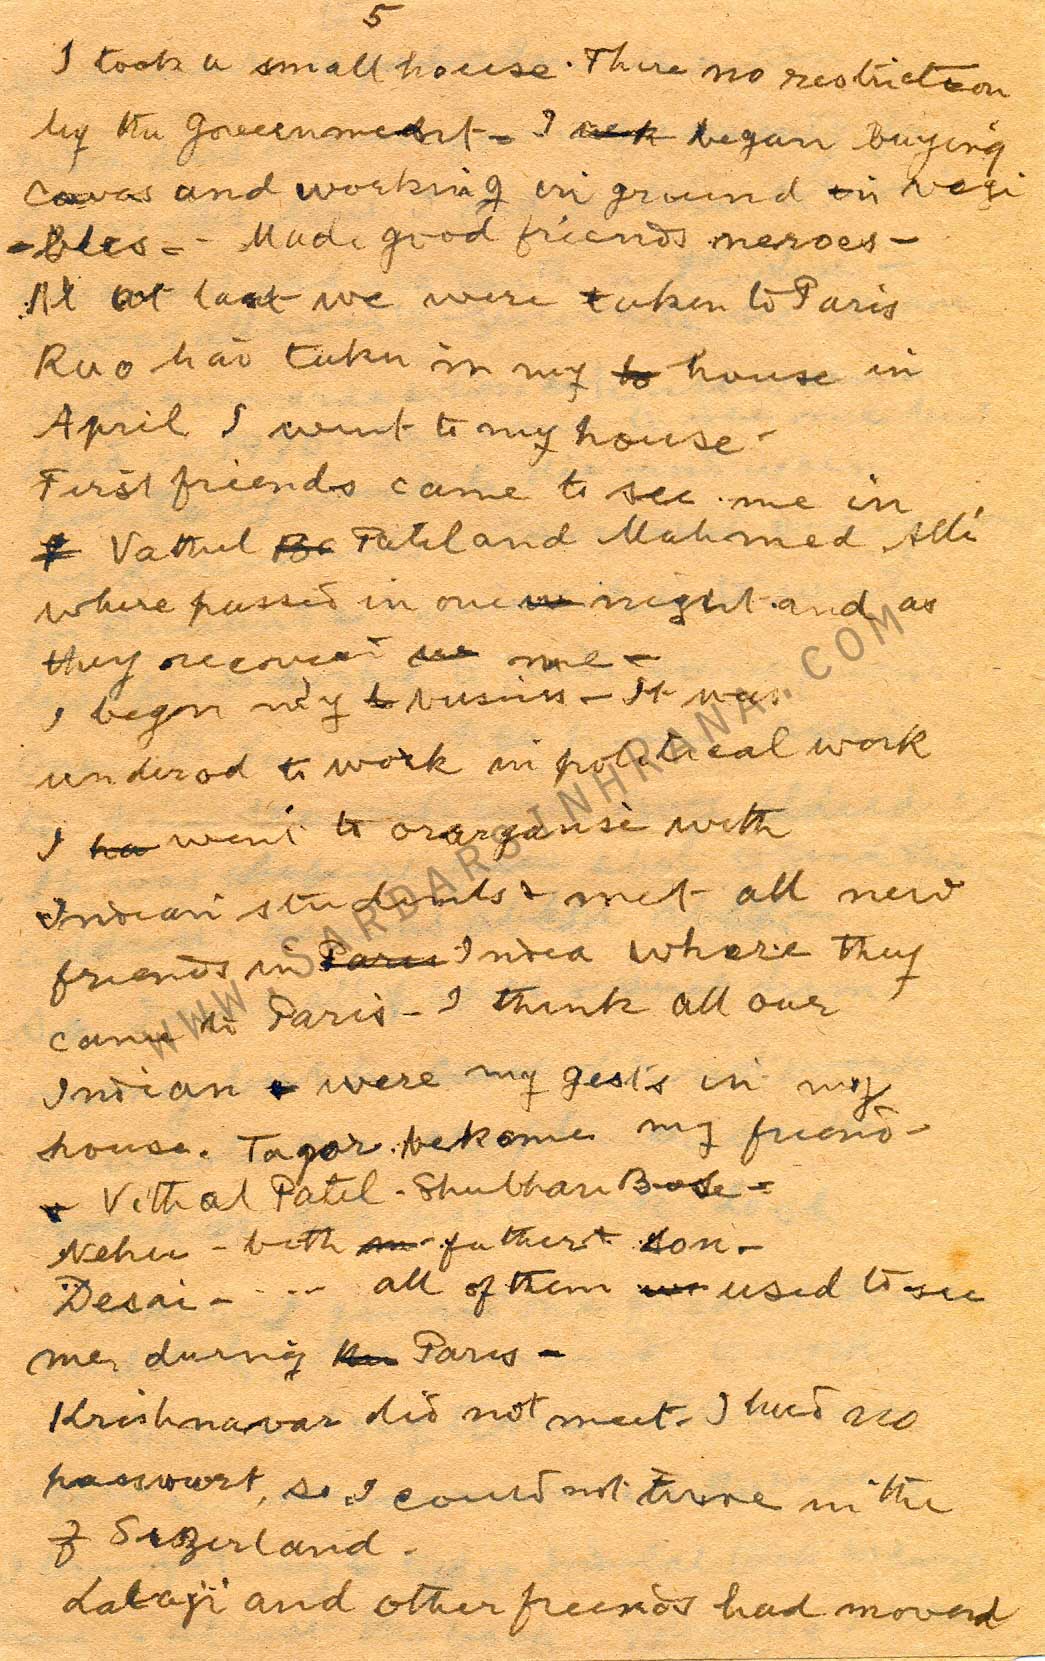 5
I took a small house. There no restriction
by the Goveenment - I began Buying
cavas and working in ground in vegi
-Bles - - Made good friends neroes -
At at last we were taken to Paris
Rao had taken in my to house in
April I went to my house -
First friends came to see me in
Vathul Patel and Mahomed Alli
where passed in one night and as
they me -
I began my business - It was
underod to work in political work
I ha went to orarganise with
Indian students & met all new
friends in Paris India where they
came to Paris - I think all our
Indian were my gests in my
house. Tagor bekame my friend -
Vithal Patel - Shubhan Bose -
Nehu - both father & son -
Desai - - -- all of them used to see
me, during Paris -
Krishnavar did not meet. I had no
passwort, so I could not in the
Sizerland.
Lalaji and other freends had moved
WWW.SARDARSINHRANA.COM